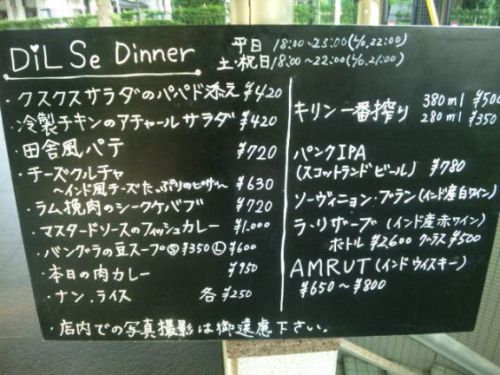 DiL Se Dinner
平日 18:00~23:00(L/o,22:00)
土・祝日18:00~22:00(L/o,21:00)
・クスクスサラダのパパド添え ¥420
・冷製チキンのアチャールサラダ ¥420
・田舎風パテ ¥720
・チーズクルチャ
~インド風チーズたっぷりのピザ~ ¥630
・ラム挽肉のシークケバブ ¥720
・マスタードソースのフィッシュカレー ¥1,000
・バングラの豆スープⓈ¥350 Ⓛ¥600
・本日の肉カレー ¥950
・ナン,ライス 各¥250
・店内での写真撮影は御遠慮下さい。
キリン一番搾り 380ml ¥500
280ml ¥350
パンクIPA
(スコットランドビール) ¥780
ソーヴィニョン・ブラン(インド産白ワイン)
ラ・リザーブ (インド産赤ワイン)
ボトル ¥2600 グラス ¥500
AMRUT(インドウイスキー)
¥650~¥800